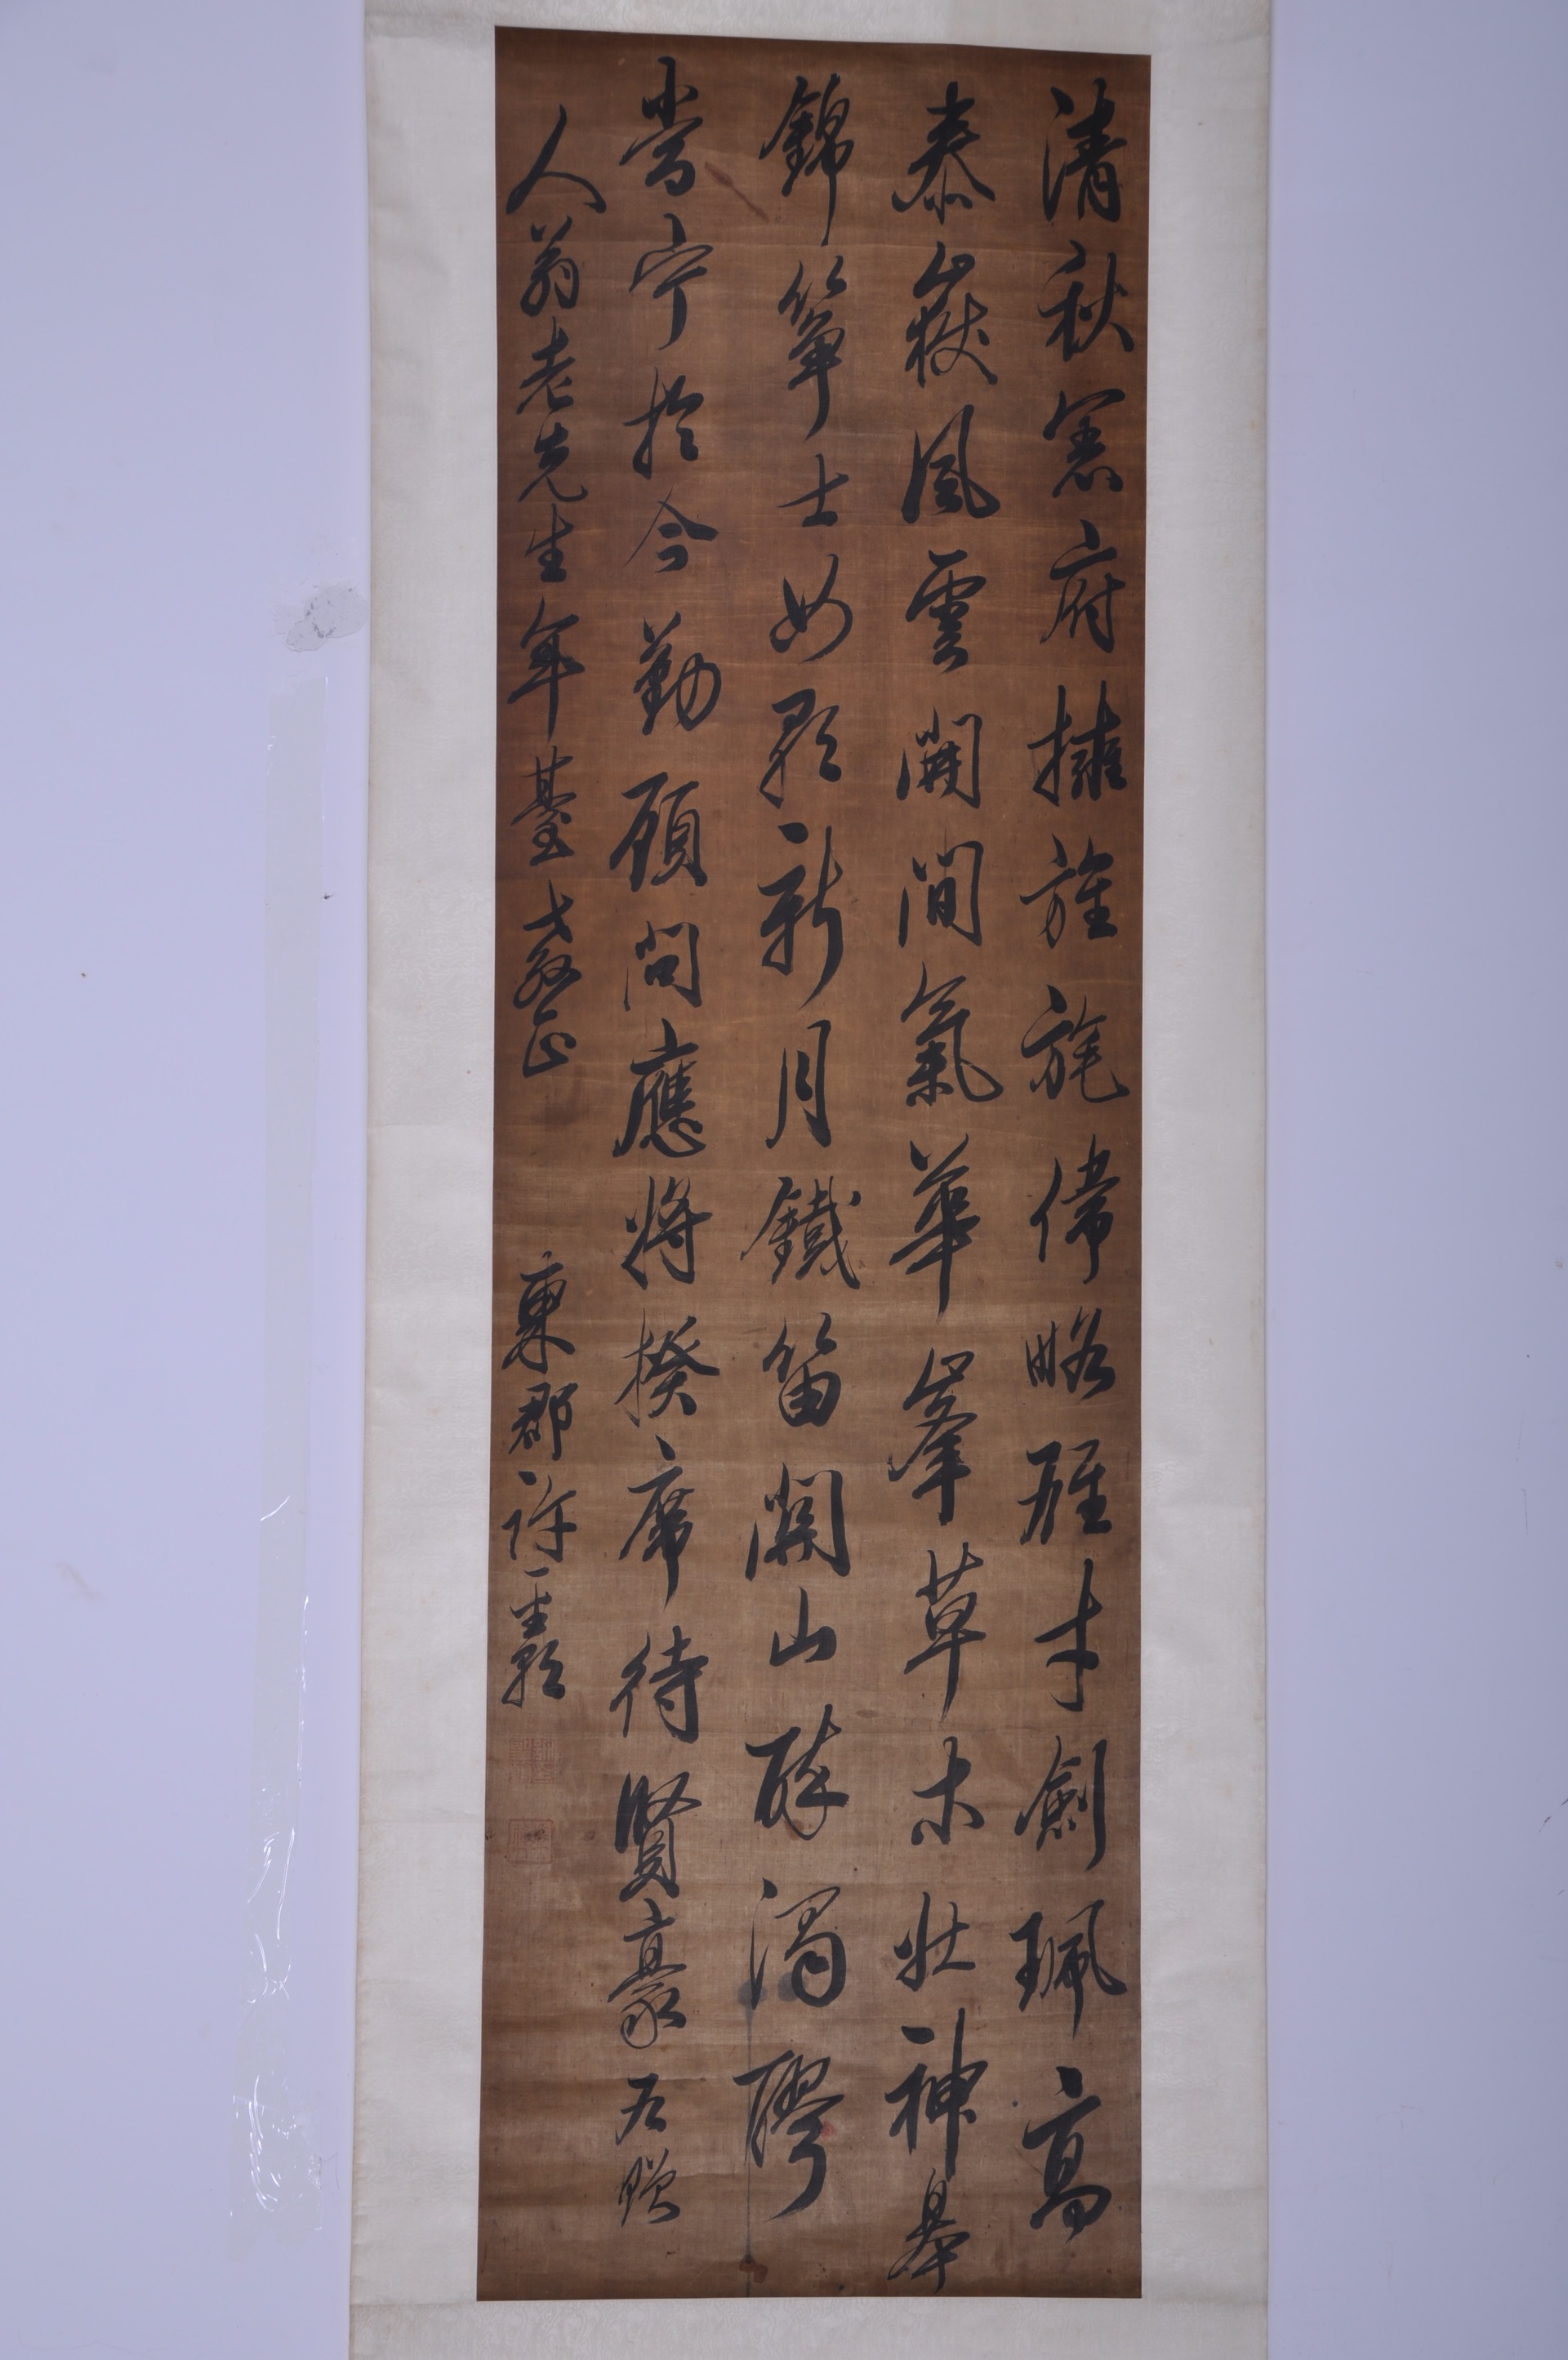 清秋憲府擁旌旄偉略雄才劍珮高
泰嶽風雲開間氣華峯草木壯神皋
錦箏士女歌新月鐵笛關山醉濁醪
當宁於今勤顧問應將揆席待賢豪右贈
人翁老先生年臺教正 東郡許